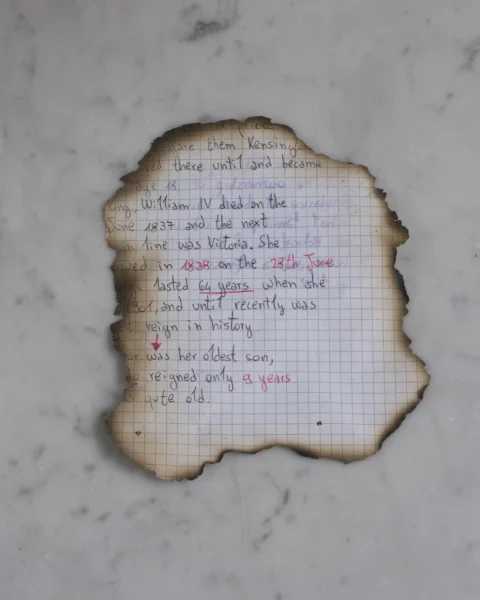 them Kensing
there until and became
age 18
ing, William IV died on the
June 1837 and the next
line was Victoria. She
wed in 1838 on the 28th June
lasted 64 years when she
and until recently was
t reign in history
or was her oldest son,
reigned only 9 years
qute old.